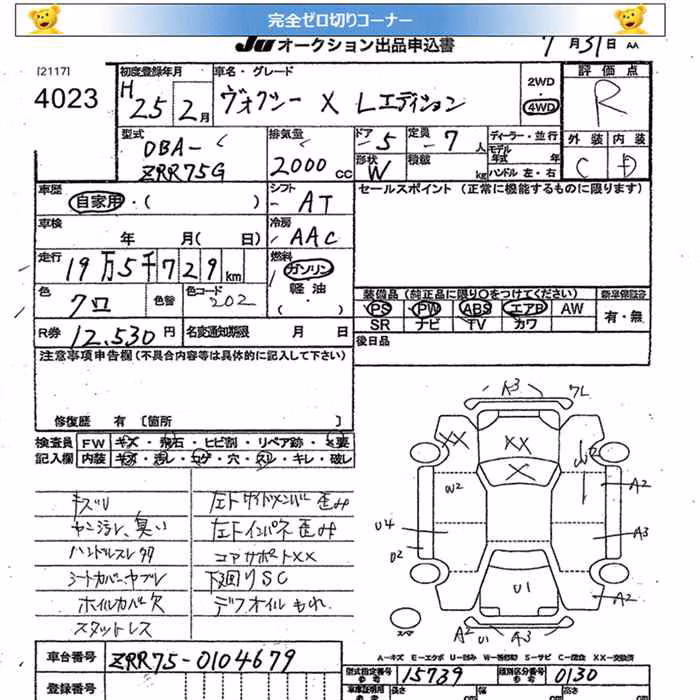 完全ゼロ切りコーナー
JUオークション出品申込書
7月31日 AA
[2117]
4023
初度登録年月
H 25 2月
車名・グレード
ヴォクシー X Lエディション
2WD
4WD
評価点
R
型式
DBA-
ZRR75G
排気量
2000cc
ドア
5
定員
7人
形状
W
積載
kg
ディーラー・並行
モデル年式 年
ハンドル 左・右
外装 内装
C D
車歴
自家用・( )
シフト
AT
セールスポイント (正常に機能するものに限ります)
車検
年 月( 日)
冷房
AAC
走行
19万5千729km
燃料
ガソリン
軽油
色
クロ
色替
色コード
202
装備品(純正品に限り○をつけてください)
新車保証書
PS PW ABS エアB AW
有・無
SR ナビ TV カワ
R券
12,530円
名変通知期限 月 日
後日品
注意事項申告欄(不具合内容等は具体的に記入して下さい)
修復歴 有 [箇所 ]
検査員記入欄
FW キズ・飛石・ヒビ割・リペア跡・×要
内装 キズ・汚レ・コゲ・穴・スレ・キレ・破レ
キズU
ヤニ汚レ、臭い
ハンドルスレ
シートカバー、ヤブレ
ホイルカバー欠
スタットレス
左トサイドメンバー歪み
左トインパネ歪み
コアサポートXX
下廻りSC
デフオイルもれ
A3
7L
XX
XX
X
W2
W2
A2
U4
U2
A3
U1
A2
A2 U1 A3
スペア
A-キズ E-エクボ U-凹み W-板金跡 S-サビ C-腐食 XX-交換済
車台番号
ZRR75-0104679
登録番号
型式指定番号
参考
15739
類別区分番号
参考
0130
車庫証明用
長さ
幅
高さ